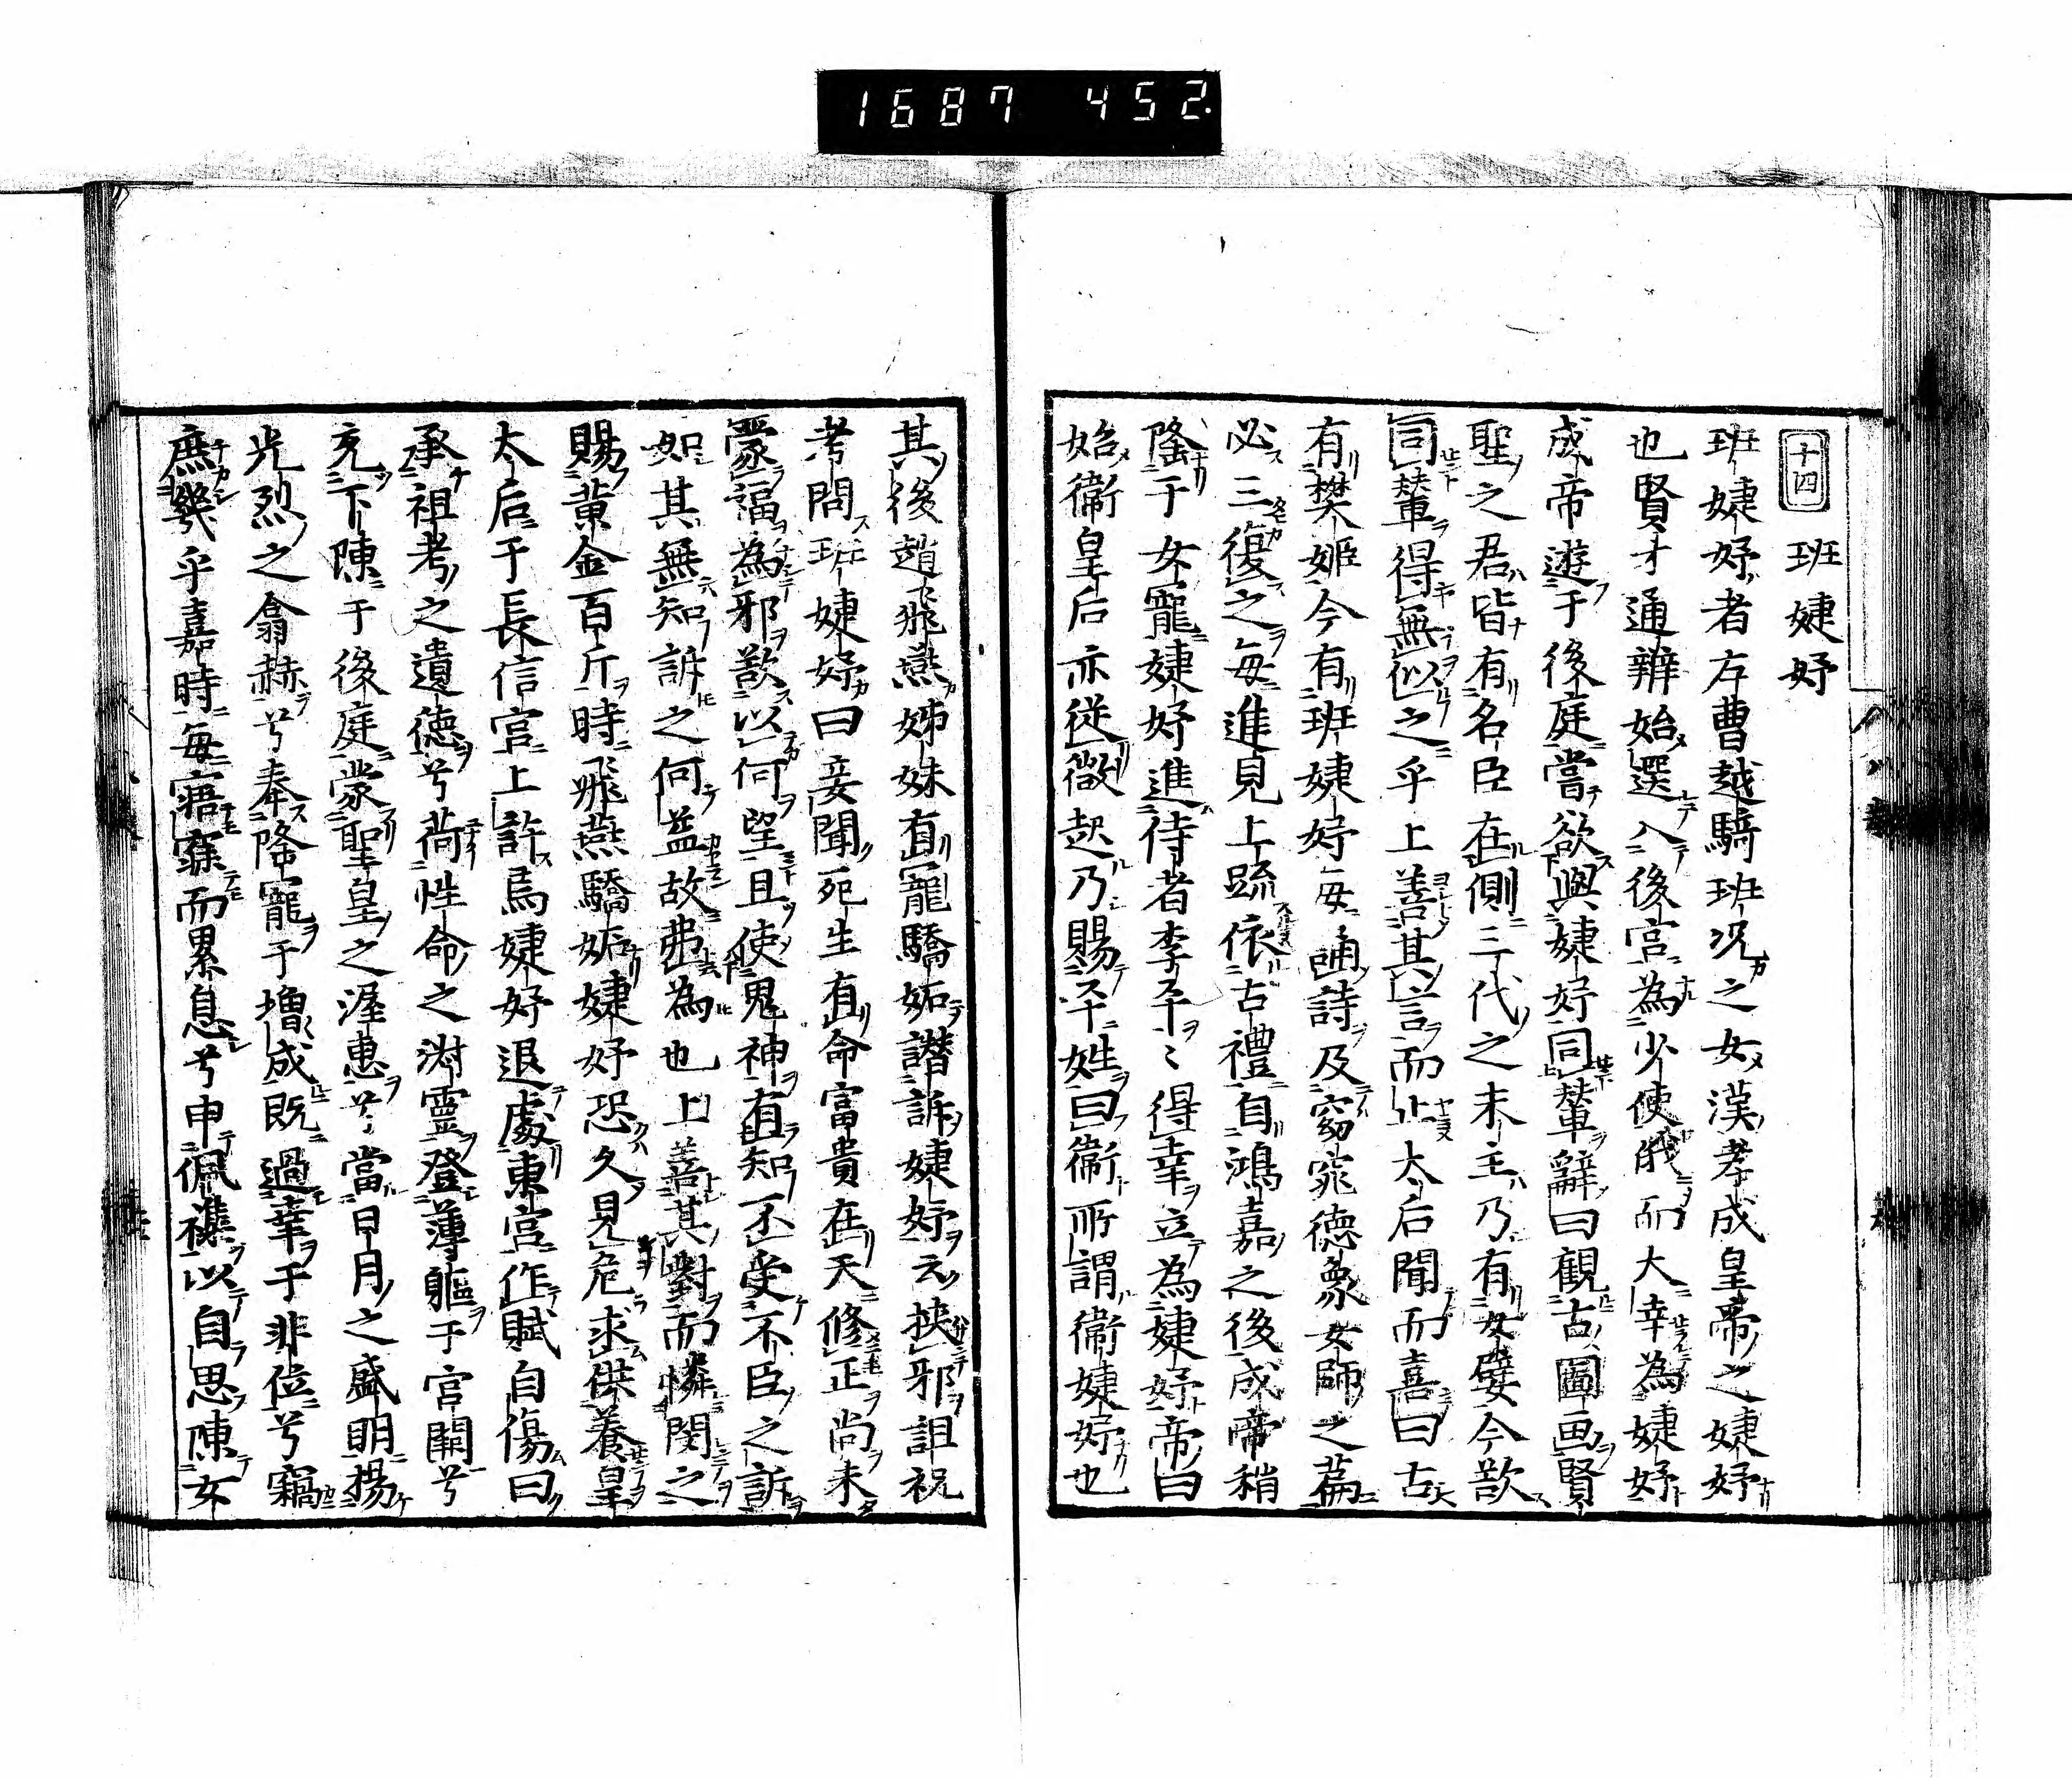 1687 452
十四 班婕妤
班婕妤者左曹越騎班况之女漢孝成皇帝之婕妤
也賢才通辨始選入後宮為少使俄而大幸為婕妤
成帝遊于後庭嘗欲與婕妤同輦辭曰觀古圖画賢
聖之君皆有名臣在側三代之末主乃有女嬖今欲
同輦得無似之乎上善其言而止太后聞而喜曰古
有樊姬今有班婕妤每誦詩及窈窕德象女師之篇
必三復之每進見上疏依古禮自鴻嘉之後成帝稍
隆于女寵婕妤進侍者李平〻得幸立為婕妤帝曰
始衞皇后亦従微起乃賜平姓曰衞所謂衞婕妤也
其後趙飛燕姊妹有寵驕妬譖訴婕妤云挾邪詛祝
考問班婕妤曰妾聞死生有命富貴在天修正尚未
蒙福為邪欲以何望且使鬼神有知不受不臣之訴
如其無知訴之何益故弗為也上善其對而憐閔之
賜黄金百斤時飛燕驕妬婕妤恐久見危求供養皇
太后于長信宮上許焉婕妤退處東宮作賦自傷曰
承祖考之遺德兮荷性命之淑靈登薄軀于宮闕兮
充下陳于後庭蒙聖皇之渥惠兮當日月之盛明揚
光烈之翕赫兮奉隆寵于增成既過幸于非位兮竊
庶幾乎嘉時毎寤寐而累息兮申佩褵以自思陳女